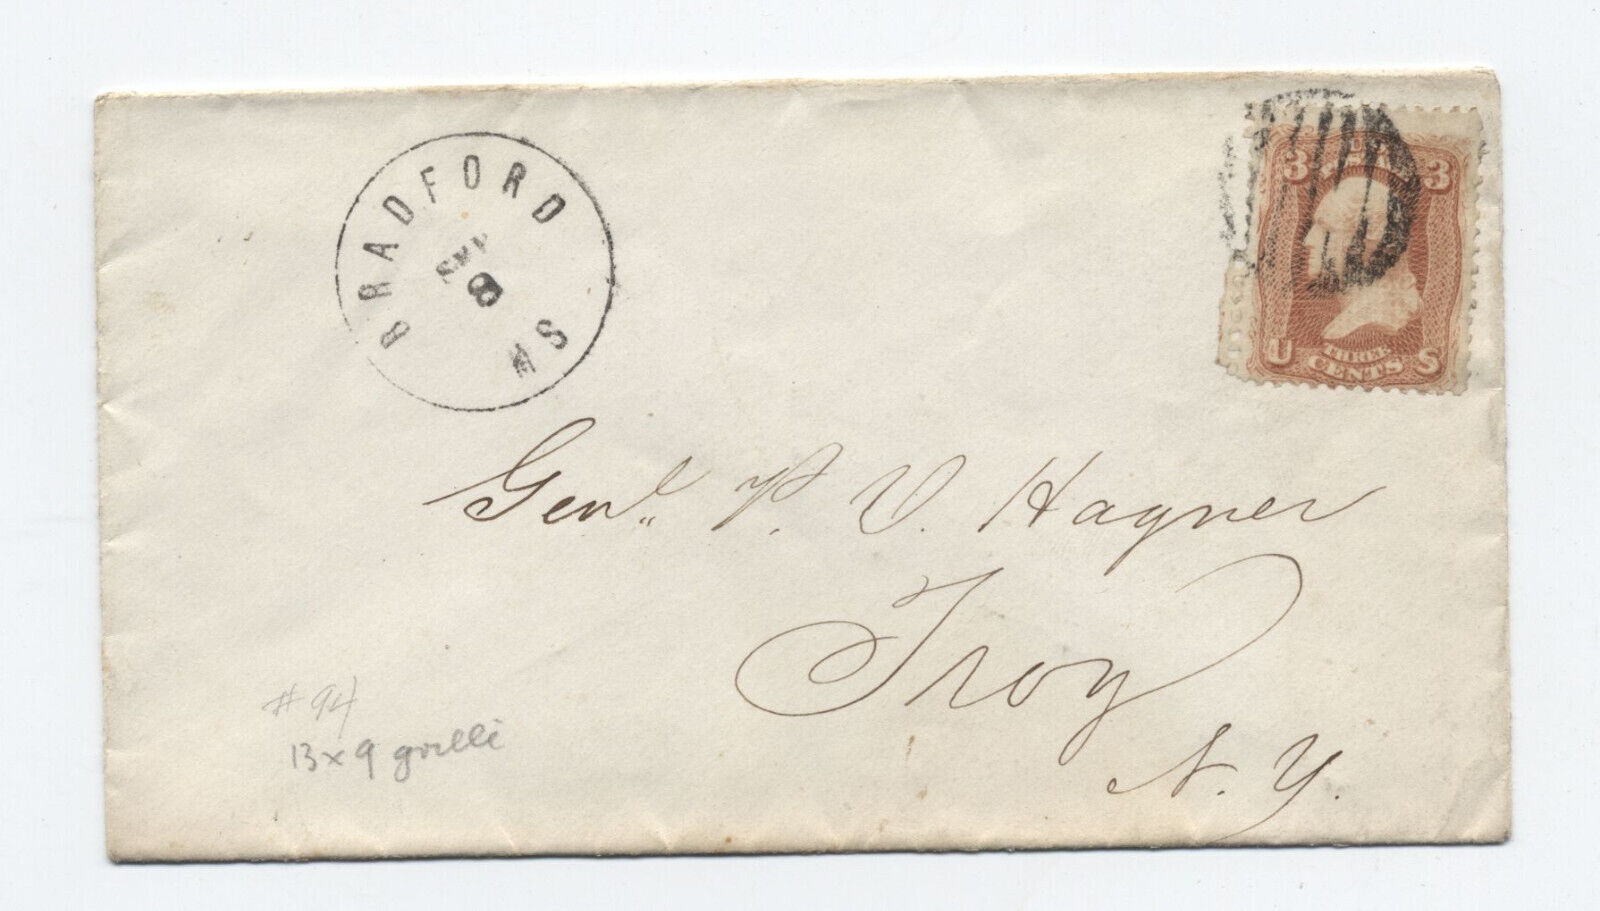 BRADFORD
8
3 3
U S
THREE
CENTS
Genl. P. V. Hagner
Troy
N. Y.
#94
13x9 grille